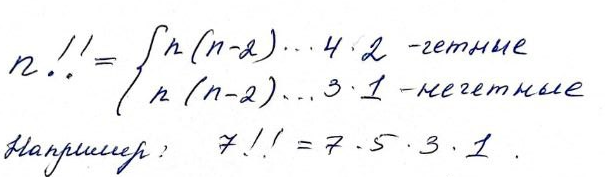 n!! = { n(n-2)...4·2 -четные
n(n-2)...3·1 -нечетные
Например: 7!! = 7·5·3·1.